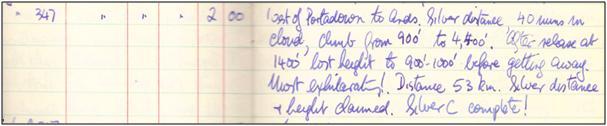 " 347 " " " 2 00 1 east of Portadown to Ards. Silver distance 40 mins in
cloud, climb from 900' to 4,400'. After release at
1400' lost height to 900'-1000' before getting away.
Most exhilarating! Distance 53 km. Silver distance
+ height claimed. Silver C complete!